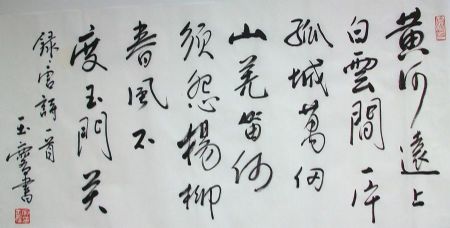 黄河遠上
白雲間一片
孤城萬仞
山羌笛何
須怨楊柳
春風不
度玉門关
録唐詩一首
玉書